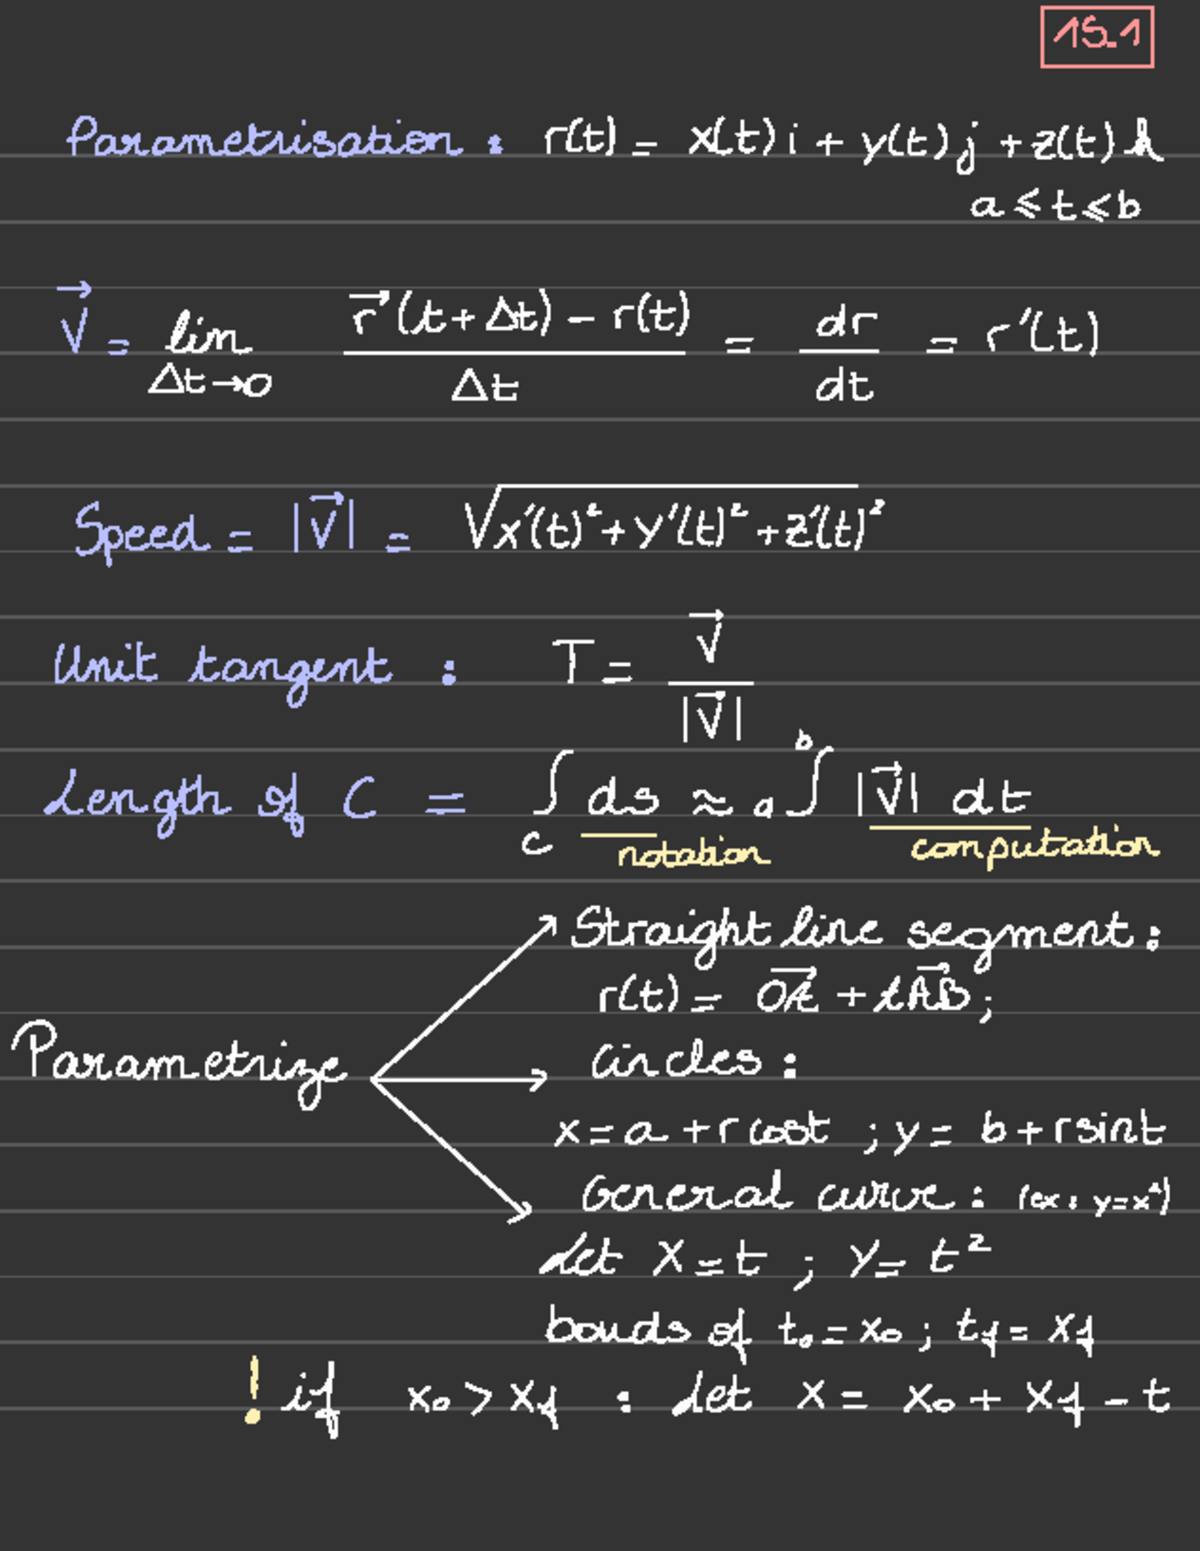 15.1
Parametrisation : r(t) = x(t) i + y(t) j + z(t) k
a ⩽ t ⩽ b
V⃗ = lim Δt→0 (r⃗(t + Δt) − r(t)) / Δt = dr/dt = r'(t)
Speed = |V⃗| = √x'(t)² + y'(t)² + z'(t)²
Unit tangent : T = V⃗ / |V⃗|
Length of C = ∫C ds ≈ a∫b |V⃗| dt
notation computation
Straight line segment :
r(t) = OA⃗ + tAB⃗ ;
Parametrize
Circles :
x = a + r cost ; y = b + r sint
General curve : (ex : y = x²)
Let x = t ; y = t²
bouds of t₀ = x₀ ; t₁ = x₁
! if x₀ > x₁ : Let x = x₀ + x₁ − t